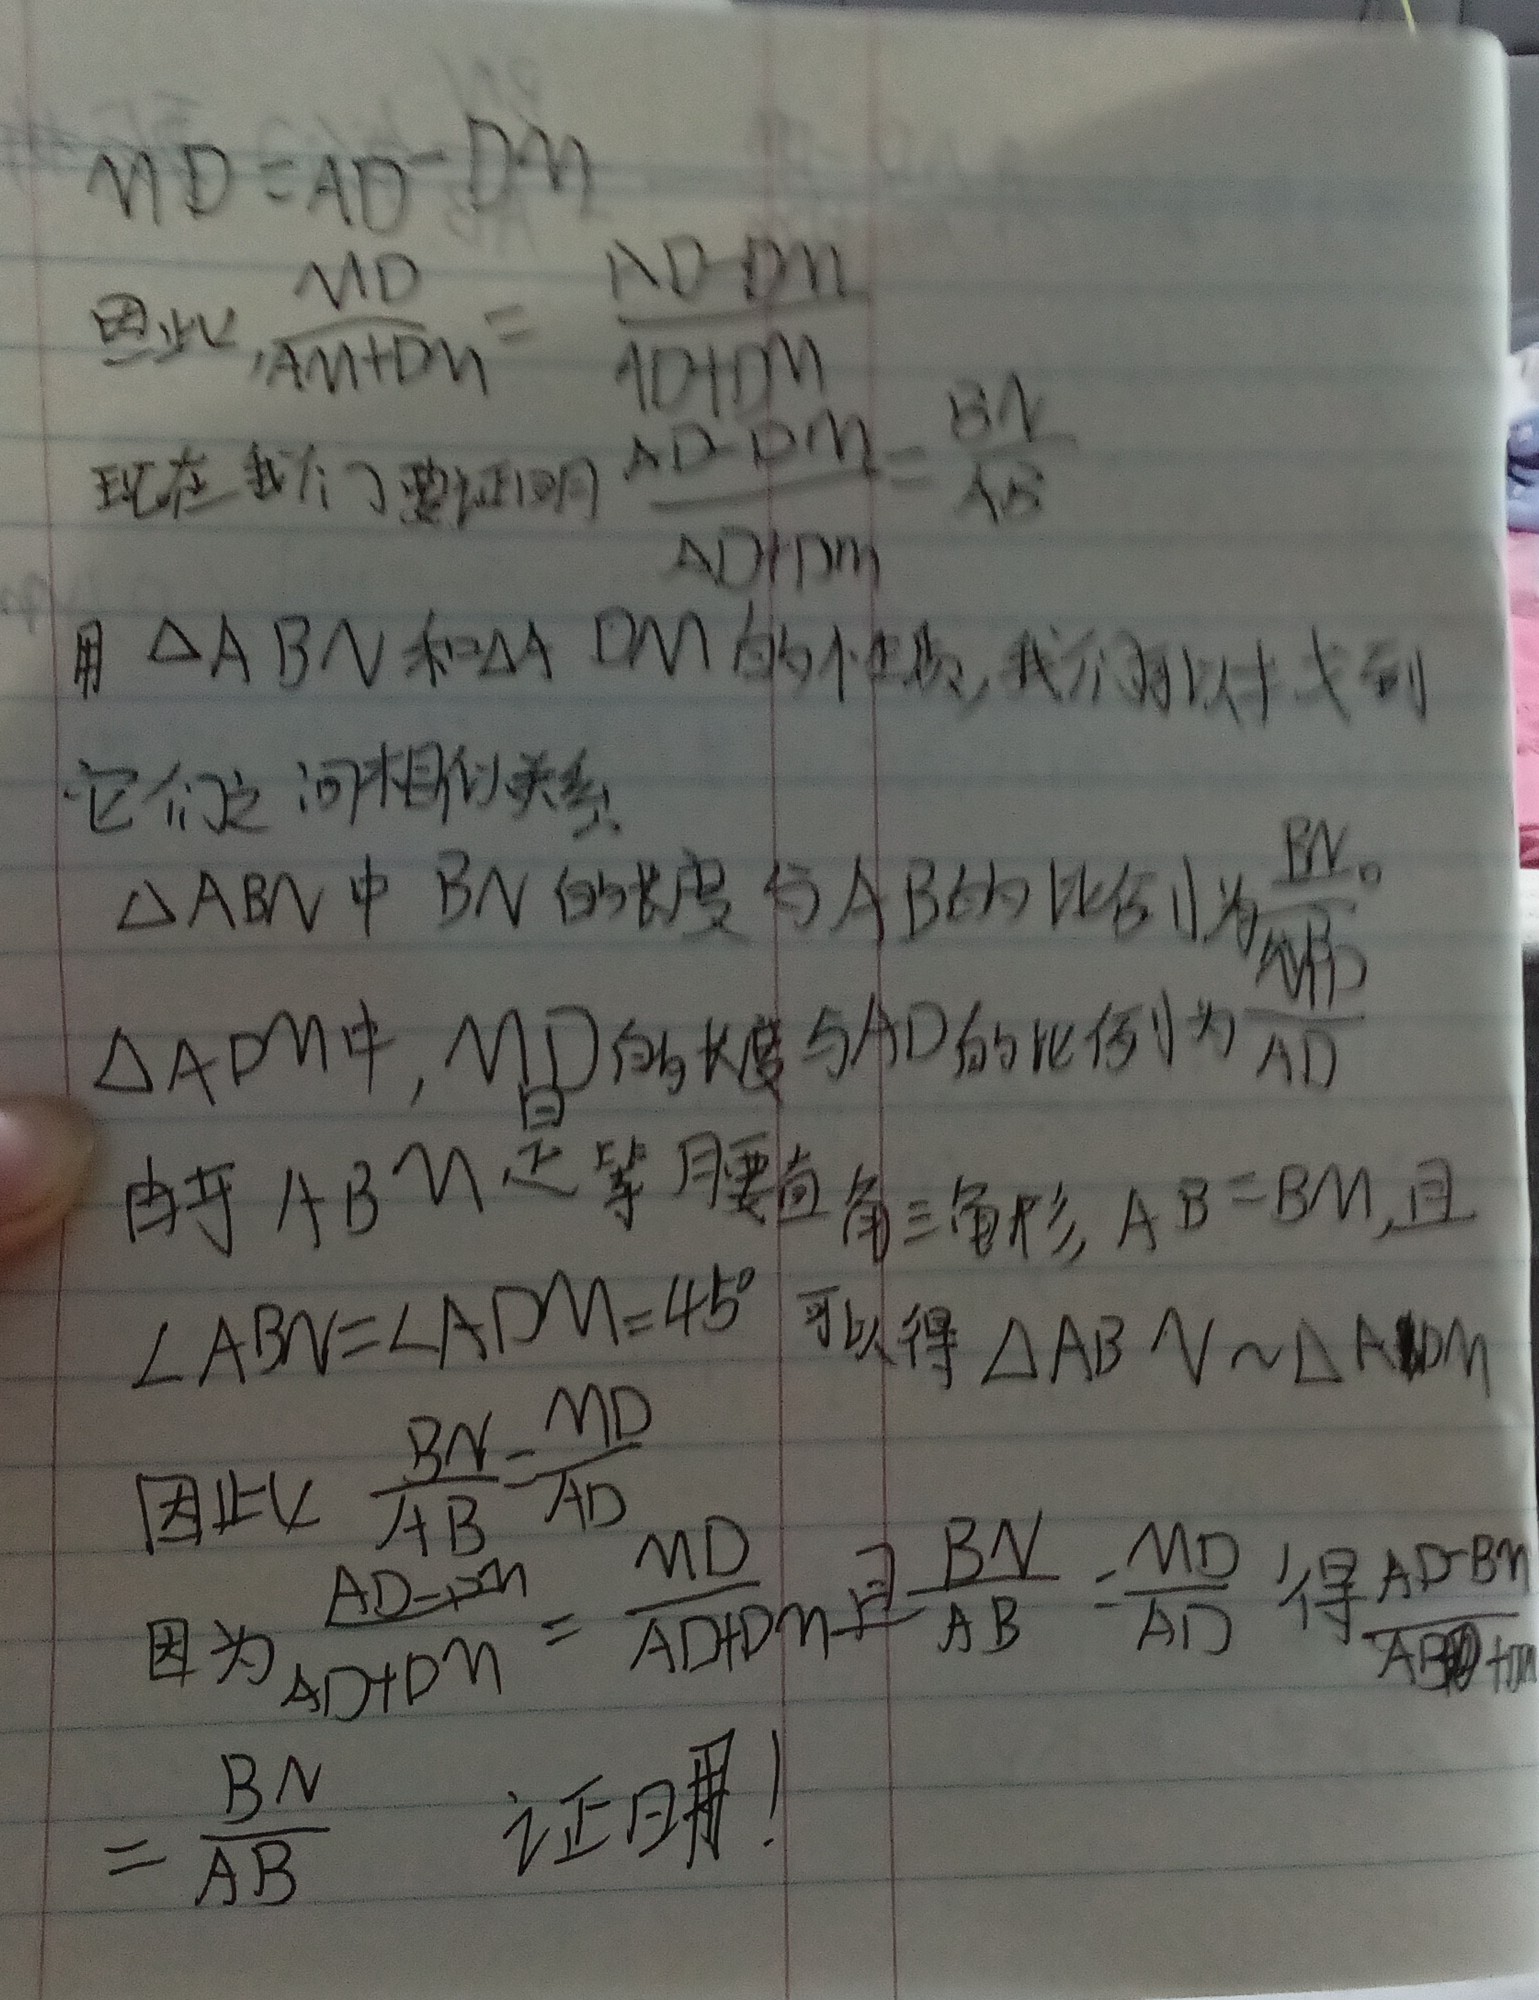 MD=AD-DM
因此,MD/AM+DM=AD-DM/AD+DM
现在我们要证明AD-DM/AD+DM=BN/AB
用△ABN和△ADM的性质,我们可以找到
它们之间相似关系
△ABN中BN的长度与AB的比例为BN/AB。
△ADM中,MD的长度与AD的比例为MD/AD
由于ABM是等腰直角三角形,AB=BM,且
∠ABN=∠ADM=45° 可以得△ABN~△ADM
因此BN/AB=MD/AD
因为AD-DM/AD+DM=MD/AD+DM且BN/AB=MD/AD得AD-BM
=BN/AB 证明!